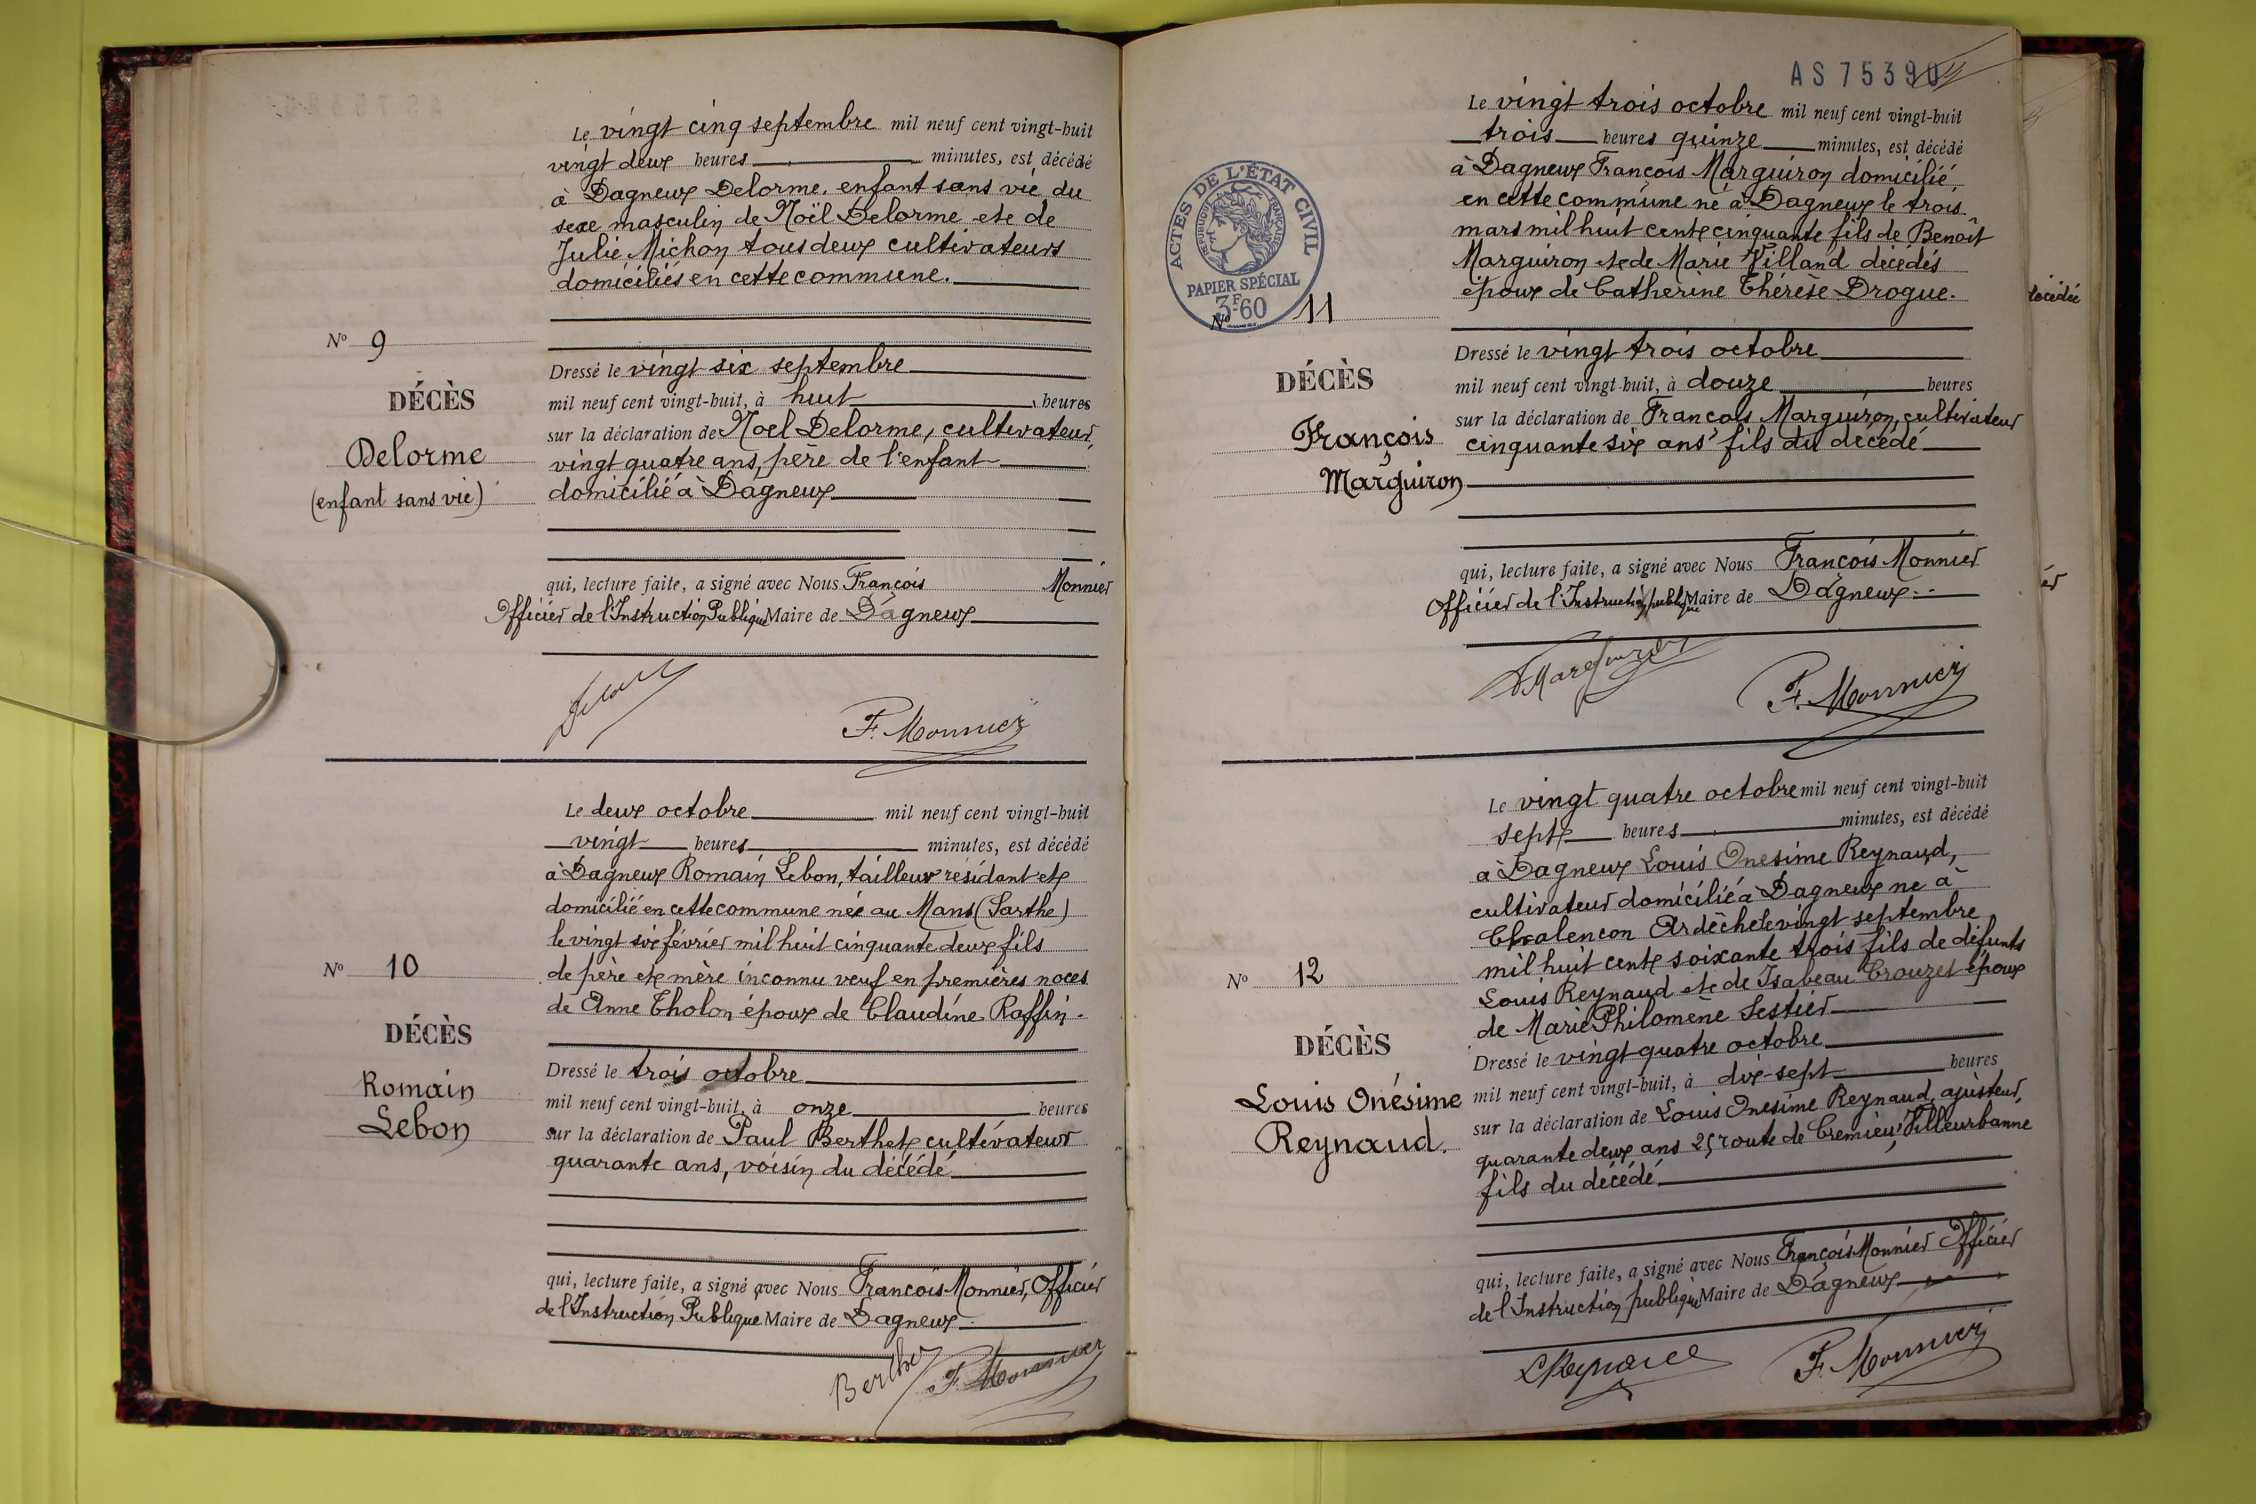 Le vingt cinq septembre mil neuf cent vingt-huit
vingt deux heures minutes, est décédé
à Dagneux Delorme. enfant sans vie du
sexe masculin de Noël Delorme et de
Julie Michon tous deux cultivateurs
domiciliés en cette commune.
N° 9
DÉCÈS
Delorme
(enfant sans vie)
Dressé le vingt six septembre
mil neuf cent vingt-huit, à huit heures
sur la déclaration de Noel Delorme, cultivateur,
vingt quatre ans, père de l'enfant
domicilié à Dagneux
qui, lecture faite, a signé avec Nous François Monnier
Officier de l'Instruction Publique Maire de Dagneux
F. Monnier
Le deux octobre mil neuf cent vingt-huit
vingt heures minutes, est décédé
à Dagneux Romain Lebon, tailleur résidant et
domicilié en cette commune née au Mans (Sarthe)
le vingt six février mil huit cinquante deux fils
de père et mère inconnu veuf en premières noces
de Anne Tholon époux de Claudine Raffin.
N° 10
DÉCÈS
Romain
Lebon
Dressé le trois octobre
mil neuf cent vingt-huit, à onze heures
sur la déclaration de Paul Berthet cultivateur
quarante ans, voisin du décédé
qui, lecture faite, a signé avec Nous François Monnier, Officier
de l'Instruction Publique Maire de Dagneux
Berthet F. Monnier
AS 75390
Le vingt trois octobre mil neuf cent vingt-huit
trois heures quinze minutes, est décédé
à Dagneux François Marguiron domicilié
en cette commune né à Dagneux le trois
mars mil huit cent cinquante fils de Benoît
Marguiron et de Marie Villand décédés
époux de Catherine Thérèse Drogue.
ACTES DE L'ÉTAT CIVIL
RÉPUBLIQUE FRANÇAISE
PAPIER SPÉCIAL
3F60
N° 11
DÉCÈS
François
Marguiron
Dressé le vingt trois octobre
mil neuf cent vingt-huit, à douze heures
sur la déclaration de François Marguiron, cultivateur
cinquante six ans fils du décédé
qui, lecture faite, a signé avec Nous François Monnier
Officier de l'Instruction publique Maire de Dagneux
F. Monnier
Le vingt quatre octobre mil neuf cent vingt-huit
sept heures minutes, est décédé
à Dagneux Louis Onesime Reynaud,
cultivateur domicilié à Dagneux né à
Chalencon Ardèche le vingt septembre
mil huit cent soixante trois fils de défunts
Louis Reynaud et de Isabeau Crouzet époux
de Marie Philomène Sestier
N° 12
DÉCÈS
Louis Onésime
Reynaud.
Dressé le vingt quatre octobre
mil neuf cent vingt-huit, à dix-sept heures
sur la déclaration de Louis Onesime Reynaud, ajusteur,
quarante deux ans 25 route de Cremieu, Villeurbanne
fils du décédé
qui, lecture faite, a signé avec Nous François Monnier Officier
de l'Instruction publique Maire de Dagneux
L Reynaud F. Monnier
décédée
er